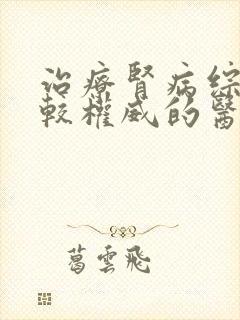 治療腎病綜
較權威的醫
葛雲飛